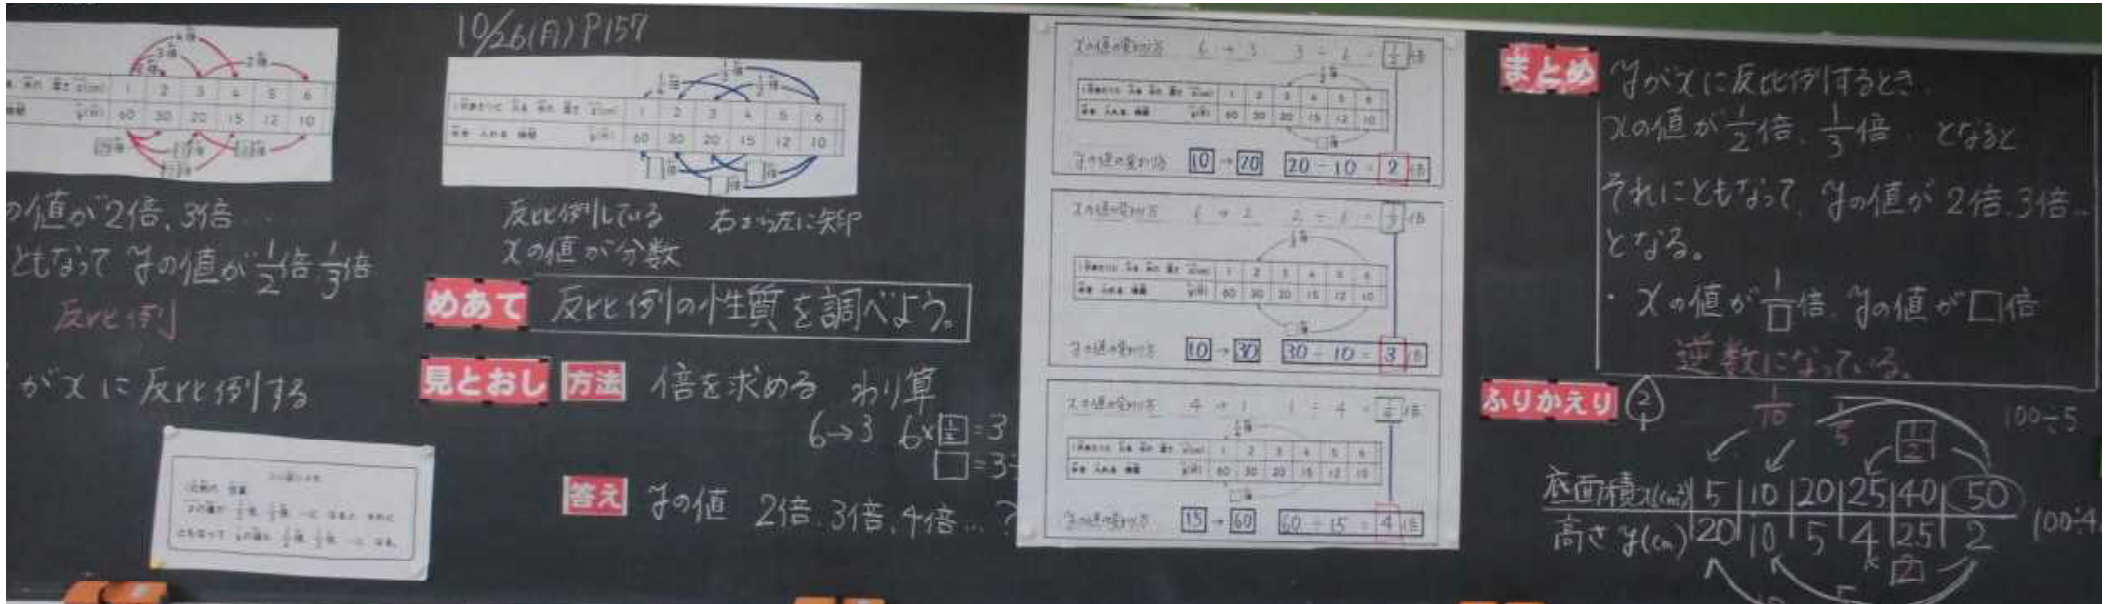 4倍
3倍
2倍
2倍
1 2 3 4 5 6
60 30 20 15 12 10
の値が2倍、3倍…
ともなって yの値が1/2倍 1/3倍
反比例
がxに反比例する
10/26(月) P157
1/4倍 1/3倍 1/2倍
x(cm) 1 2 3 4 5 6
y(分) 60 30 20 15 12 10
□倍 □倍 □倍
反比例している 右から左に矢印
xの値が分数
めあて 反比例の性質を調べよう。
見とおし 方法 倍を求める わり算
6→3 6×1/2=3
□=3÷
答え yの値 2倍、3倍、4倍…?
xの値の変わり方 6→3 3÷6=1/2倍
1/2倍
1 2 3 4 5 6
60 30 20 15 12 10
□倍
yの値の変わり方 10→20 20÷10=2倍
xの値の変わり方 6→2 2÷6=1/3倍
1/3倍
1 2 3 4 5 6
60 30 20 15 12 10
□倍
yの値の変わり方 10→30 30÷10=3倍
xの値の変わり方 4→1 1÷4=1/4倍
1/4倍
1 2 3 4 5 6
60 30 20 15 12 10
□倍
yの値の変わり方 15→60 60÷15=4倍
まとめ yがxに反比例するとき、
xの値が1/2倍、1/3倍…となると
それにともなって、yの値が2倍、3倍…
となる。
・xの値が1/□倍、yの値が□倍
逆数になっている。
ふりかえり 2
1/10 1/5 1/2 100÷5
底面積x(cm²) 5 10 20 25 40 50
高さy(cm) 20 10 5 4 25 2 100÷4
2
10 5